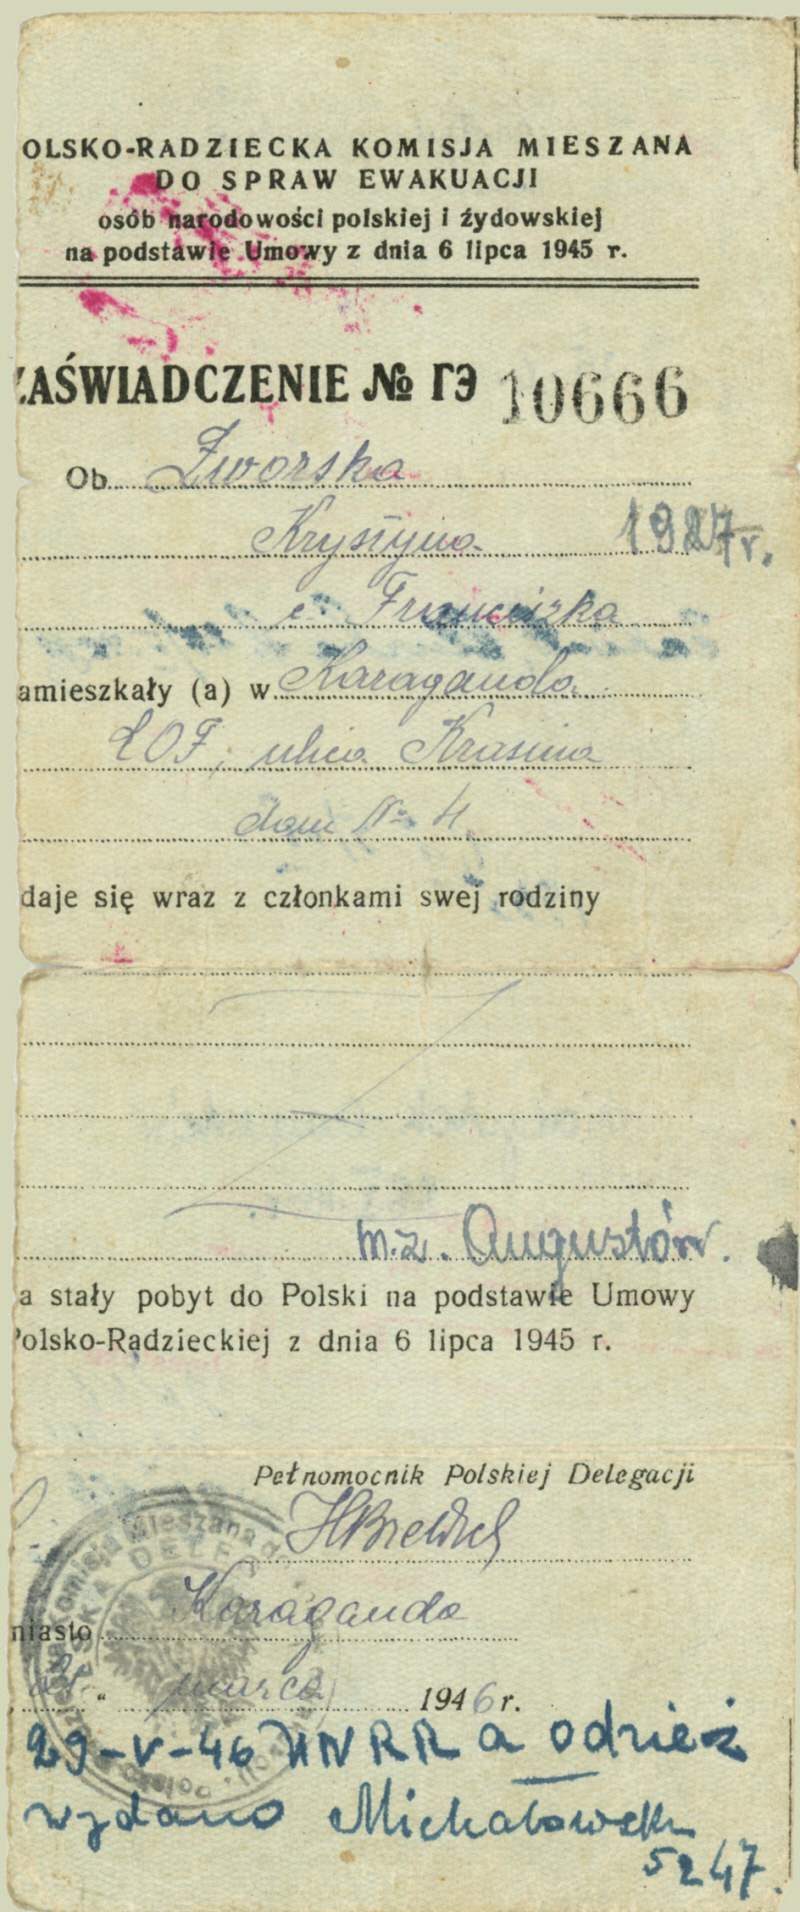 OLSKO-RADZIECKA KOMISJA MIESZANA
DO SPRAW EWAKUACJI
osób narodowości polskiej i żydowskiej
na podstawie Umowy z dnia 6 lipca 1945 r.
ZAŚWIADCZENIE № ГЭ 10666
Ob. Zworska
Krystyna 1927r.
c. Franciszka
amieszkały (a) w Karaganda
ulica Krasina
dom № 4
daje się wraz z członkami swej rodziny
m.z. Augustów.
a stały pobyt do Polski na podstawie Umowy
Polsko-Radzieckiej z dnia 6 lipca 1945 r.
Pełnomocnik Polskiej Delegacji
miasto Karaganda
marca 1946 r.
29-V-46 UNRRA odzież
wydano
5247.